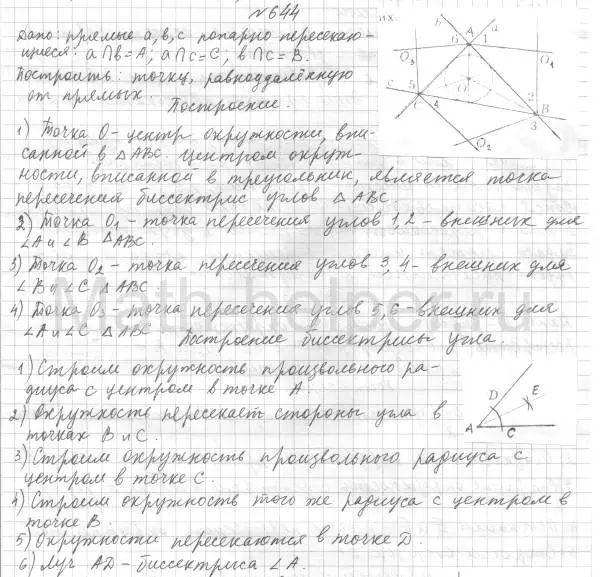 № 644
Дано: прямые a, b, c попарно пересекаю-
щиеся: a∩b=A; a∩c=C; b∩c=B.
Построить: точку, равноудалённую
от прямых.
Построение.
1) Точка O - центр окружности, впи-
санной в △ABC. Центром окруж-
ности, вписанной в треугольник, является точка
пересечения биссектрис углов △ABC.
2) Точка O₁ - точка пересечения углов 1, 2 - внешних для
∠A и ∠B △ABC.
3) Точка O₂ - точка пересечения углов 3, 4 - внешних для
∠B и ∠C △ABC.
4) Точка O₃ - точка пересечения углов 5, 6 - внешних для
∠A и ∠C △ABC.
Построение биссектрисы угла.
1) Строим окружность произвольного ра-
диуса с центром в точке A.
2) Окружность пересекает стороны угла в
точках B и C.
3) Строим окружность произвольного радиуса с
центром в точке C.
4) Строим окружность того же радиуса с центром в
точке B.
5) Окружности пересекаются в точке D.
6) Луч AD - биссектриса ∠A.
их.
b
a
6 A 1
O₃
O₁
c
5
O
4
2
B
3
O₂
D
E
A
C
Math-helper.ru